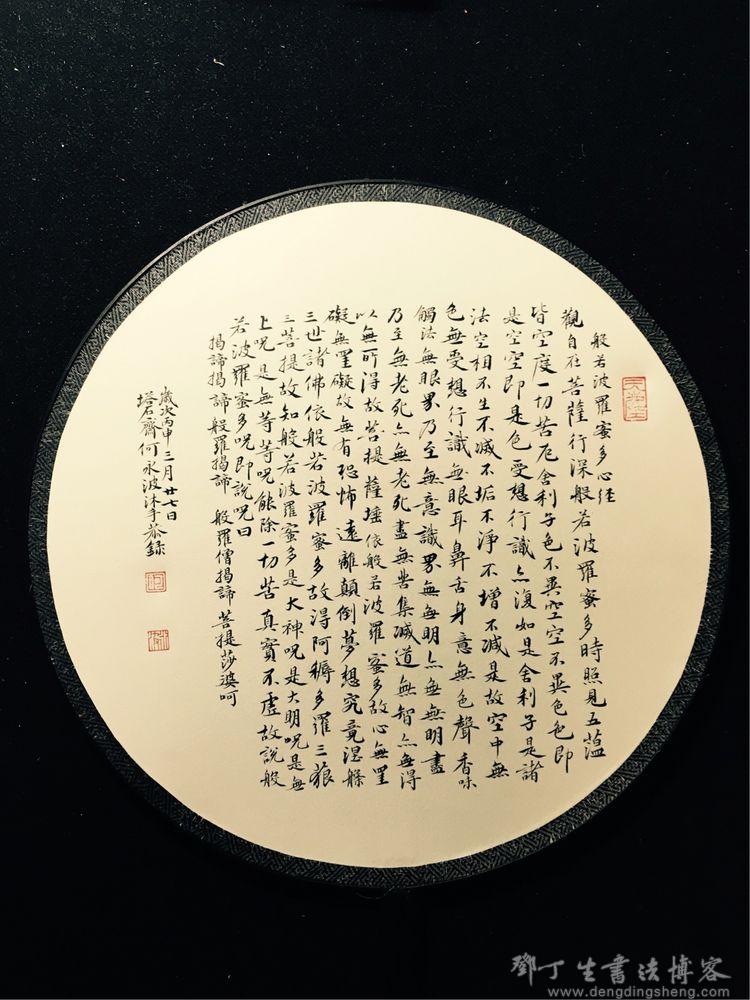 般若波羅蜜多心经
觀自在菩薩行深般若波羅蜜多時照見五蕴
皆空度一切苦厄舍利子色不異空空不異色色即
是空空即是色受想行識亦復如是舍利子是諸
法空相不生不滅不垢不淨不增不減是故空中無
色無受想行識無眼耳鼻舌身意無色聲香味
觸法無眼界乃至無意識界無無明亦無無明盡
乃至無老死亦無老死盡無苦集滅道無智亦無得
以無所得故菩提薩埵依般若波羅蜜多故心無罣
礙無罣礙故無有恐怖遠離顛倒夢想究竟涅槃
三世諸佛依般若波羅蜜多故得阿耨多羅三藐
三菩提故知般若波羅蜜多是大神呪是大明呪是無
上呪是無等等呪能除一切苦真實不虛故說般
若波羅蜜多呪即說呪曰
揭諦揭諦 般羅揭諦 般羅僧揭諦 菩提莎婆呵
歲次丙申三月廿七日
塔石齋何永波沐手恭録
鄧丁生書法博客
www.dengdingsheng.com